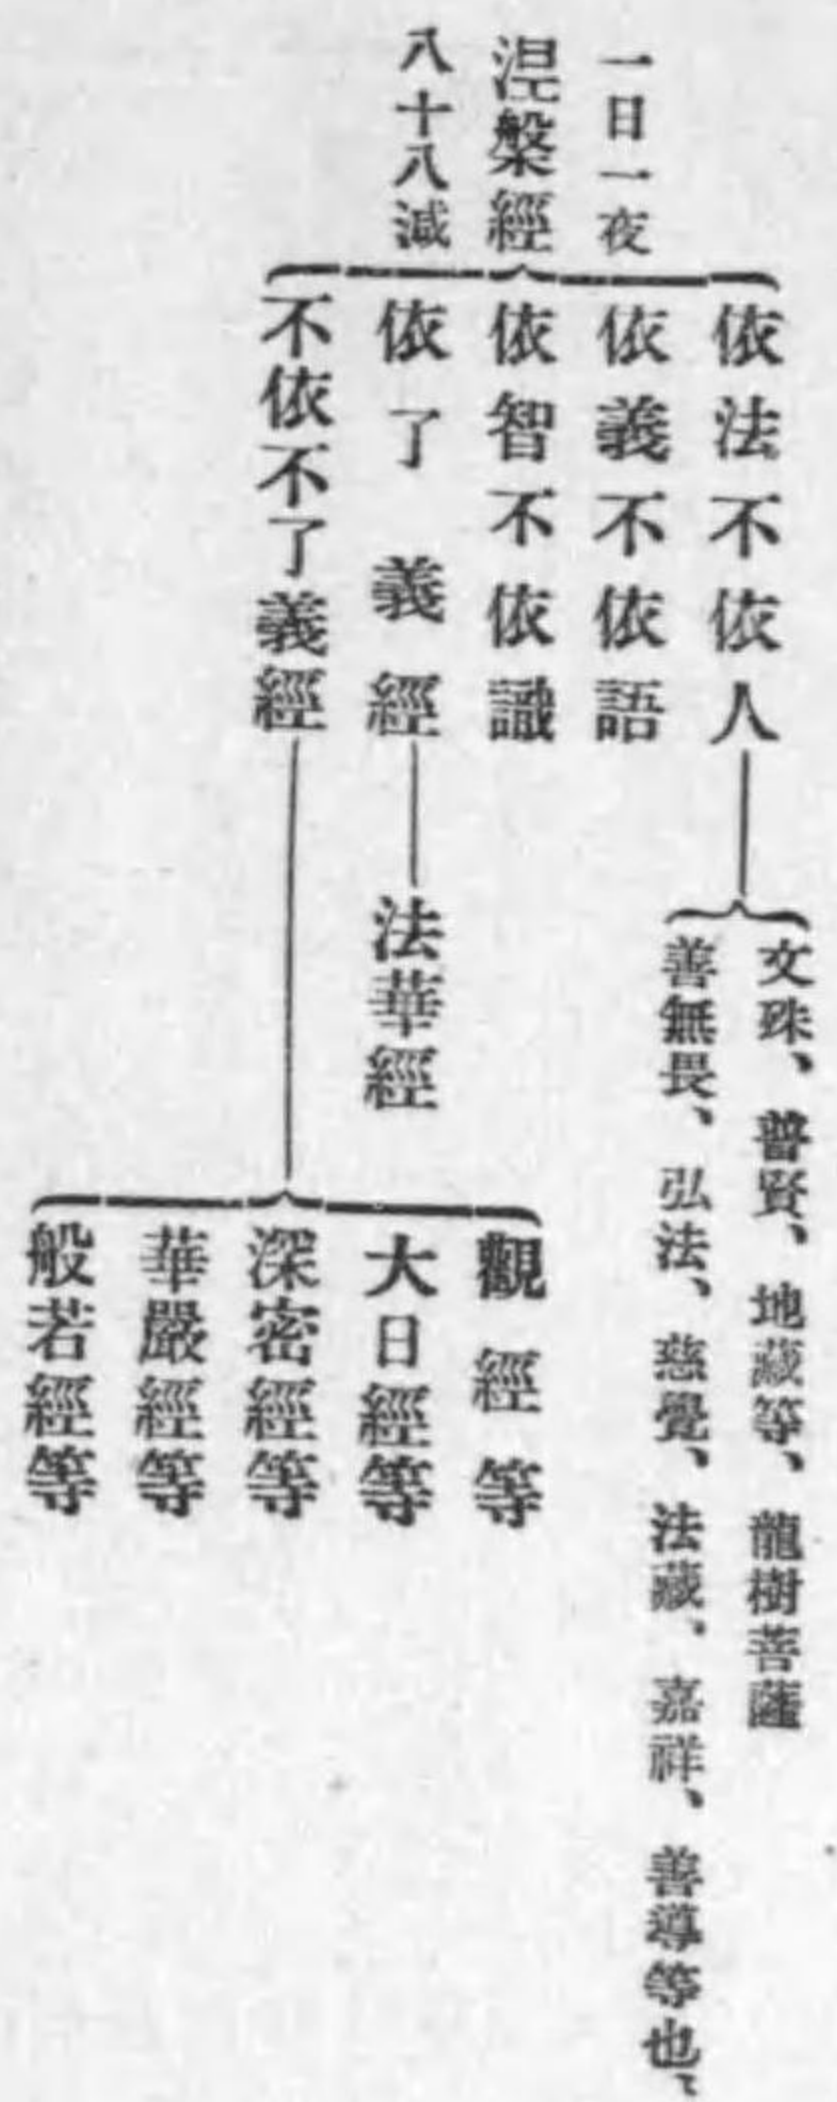 一日一夜
涅槃經
八十八減
依法不依人
文殊、普賢、地藏等、龍樹菩薩
善無畏、弘法、慈覺、法藏、嘉祥、善導等也、
依義不依語
依智不依識
依了義經
法華經
不依不了義經
觀經等
大日經等
深密經等
華嚴經等
般若經等